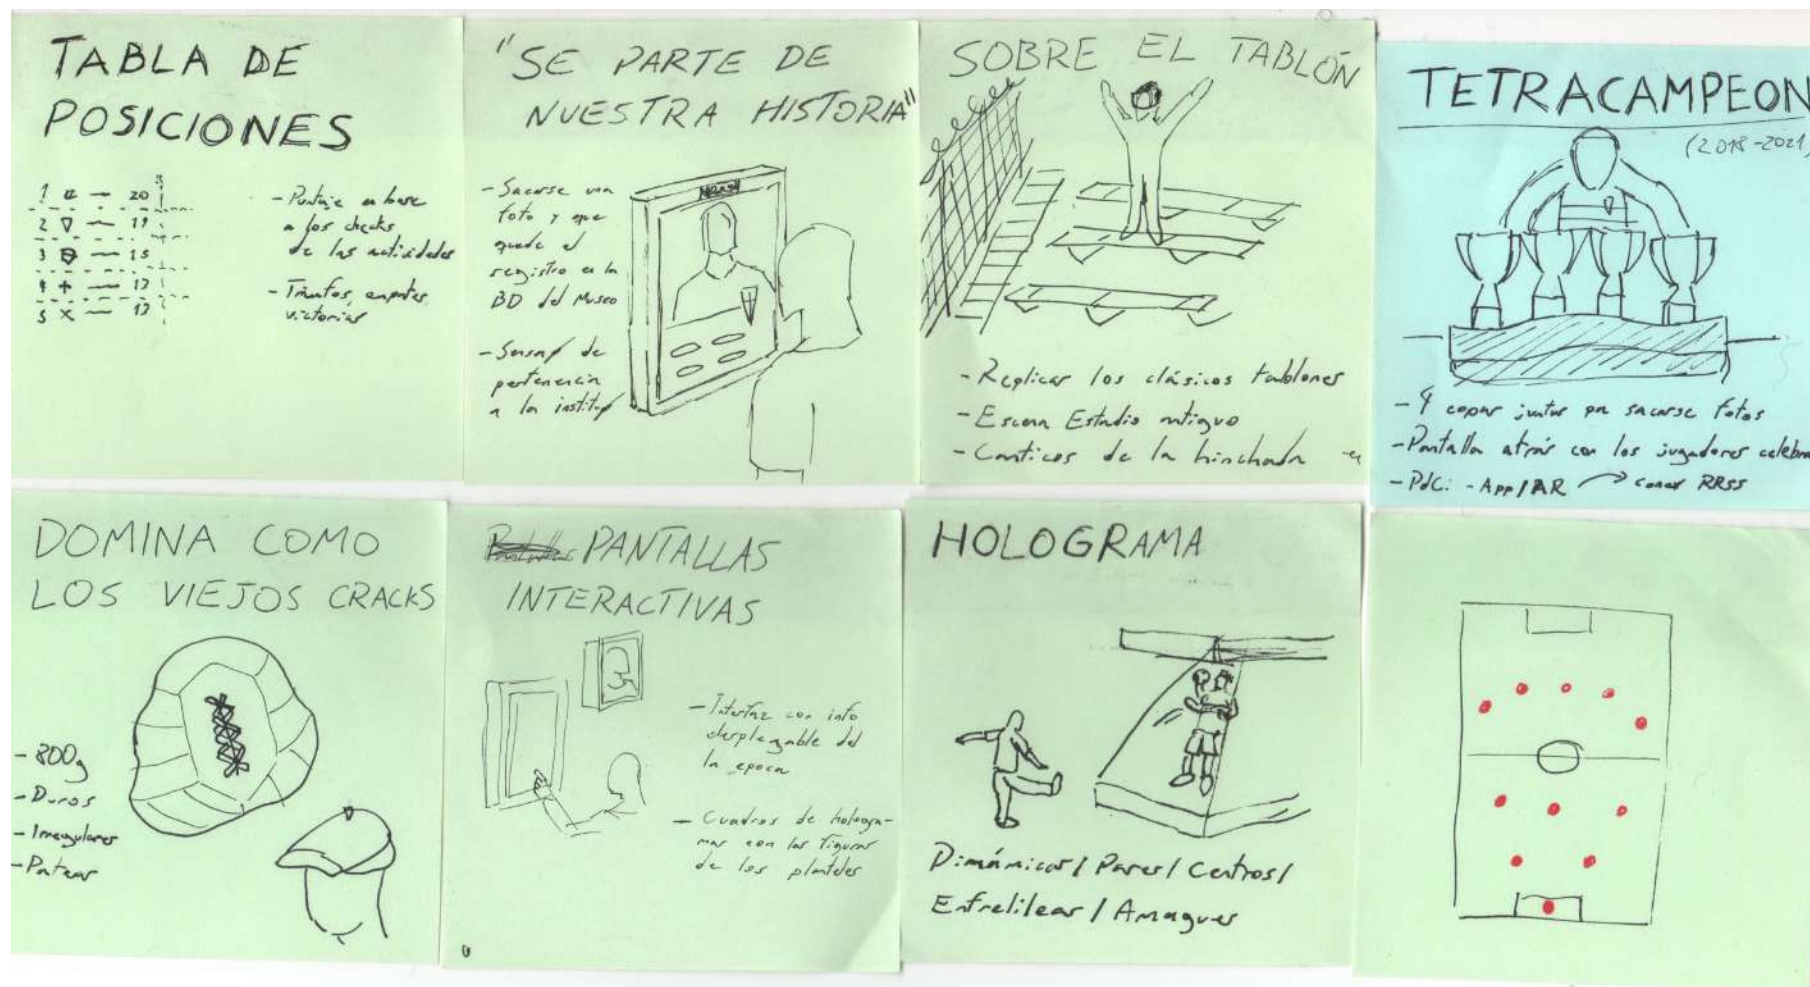 TABLA DE
POSICIONES
1 — 20
2 — 19
3 — 15
4 + — 13
5 X — 13
- Puntaje en base
a los checks
de las actividades
- Triunfos, empates,
victorias
"SE PARTE DE
NUESTRA HISTORIA"
- Sacarse una
foto y que
quede el
registro en la
BD del Museo
- de
pertenencia
a la
SOBRE EL TABLÓN
- Replicar los clásicos tablones
- Escena Estadio antiguo
- Canticos de la hinchada
TETRACAMPEON
(2018-2021)
- 4 copas juntas pa sacarse fotos
- Pantalla atrás con los jugadores celebra
- PdC: - App/AR RRSS
DOMINA COMO
LOS VIEJOS CRACKS
- 800g
- Duros
- Irregulares
- Patear
PANTALLAS
INTERACTIVAS
- Interfaz con info
desplegable de
la epoca
- Cuadros de hologra-
mas con las figuras
de los planteles
HOLOGRAMA
Dinámicas / Pases / Centros /
/ Amagues